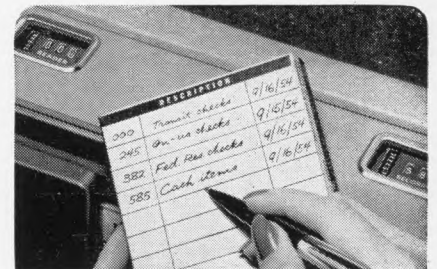 DESCRIPTION
000 Transit checks 9/16/54
245 On-us checks 9/15/54
382 Fed. Res checks 9/16/54
585 Cash items 9/16/54